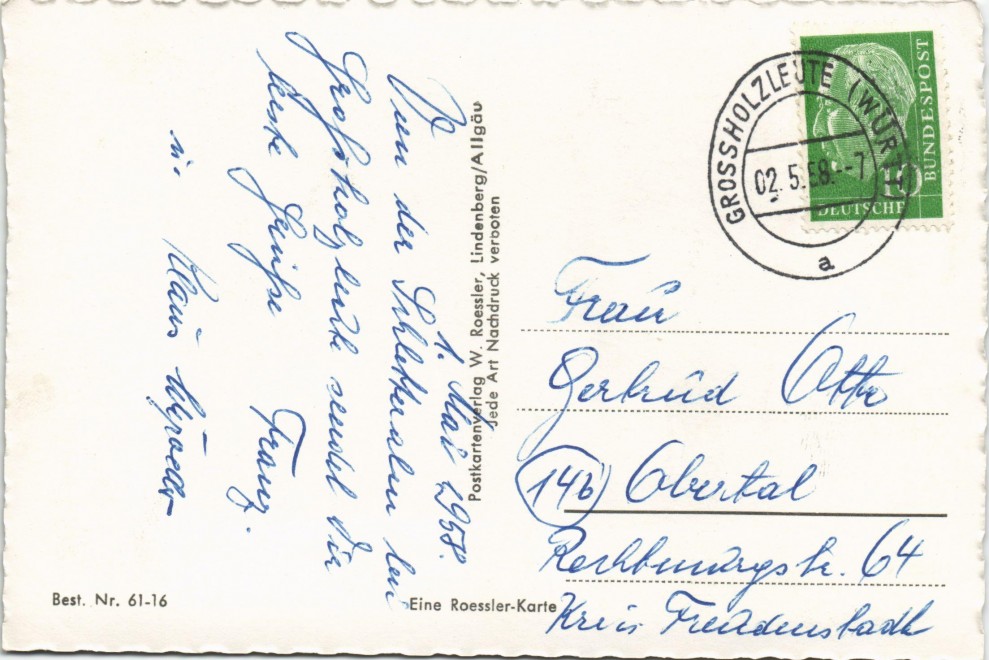 1. Mai 1958.
Von der Schletteralm bei
Großholzleute sendet Dir
beste Grüße Franz.
u. Klaus
Postkartenverlag W. Roessler, Lindenberg/Allgäu
Jede Art Nachdruck verboten
GROSSHOLZLEUTE (WÜRTT)
02. 5. 58. --7
a
10
DEUTSCHE
BUNDESPOST
Frau
Gertrud Otto
(14b) Obertal
Rechbergstr. 64
Kreis Freudenstadt
Best. Nr. 61-16
Eine Roessler-Karte